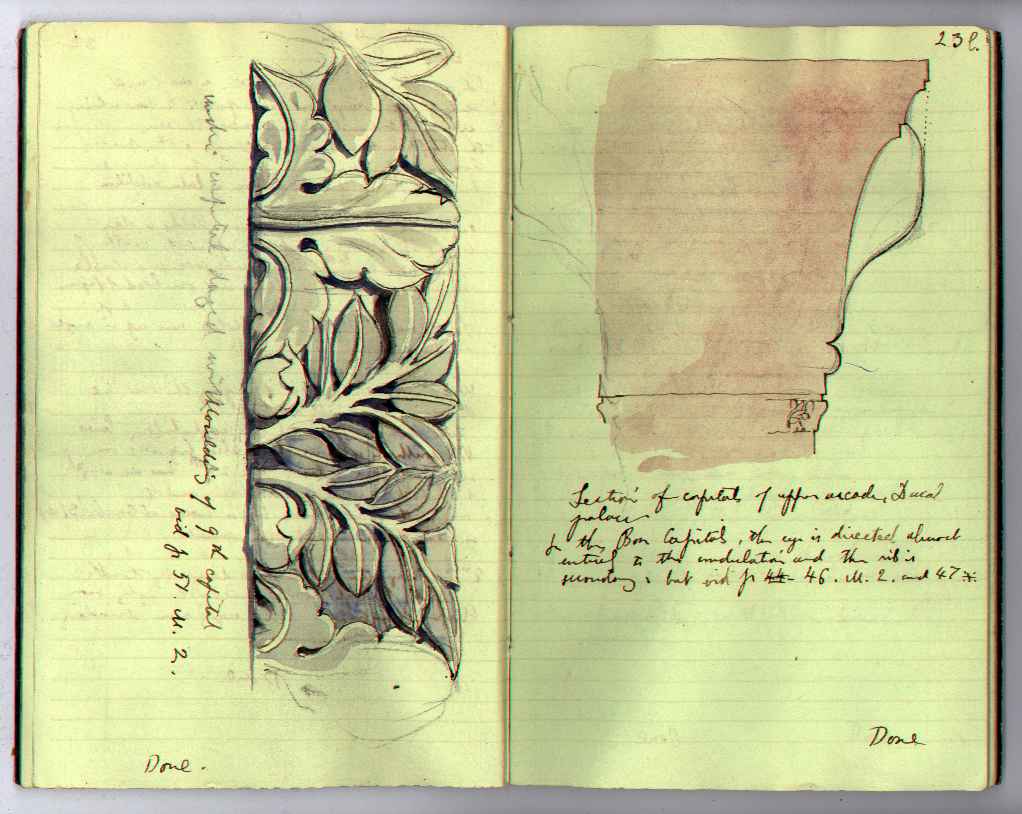 under capital dazed with moulding of 9th capital
vid p 51. M. 2.
Done.
23 l.
Section of capitals of upper arcade, Ducal
palace
In the Bon Capitals, the eye is directed almost
entirely to the undulation and the rib is
secondary, but vid p 44 46. M. 2. and 47
Done